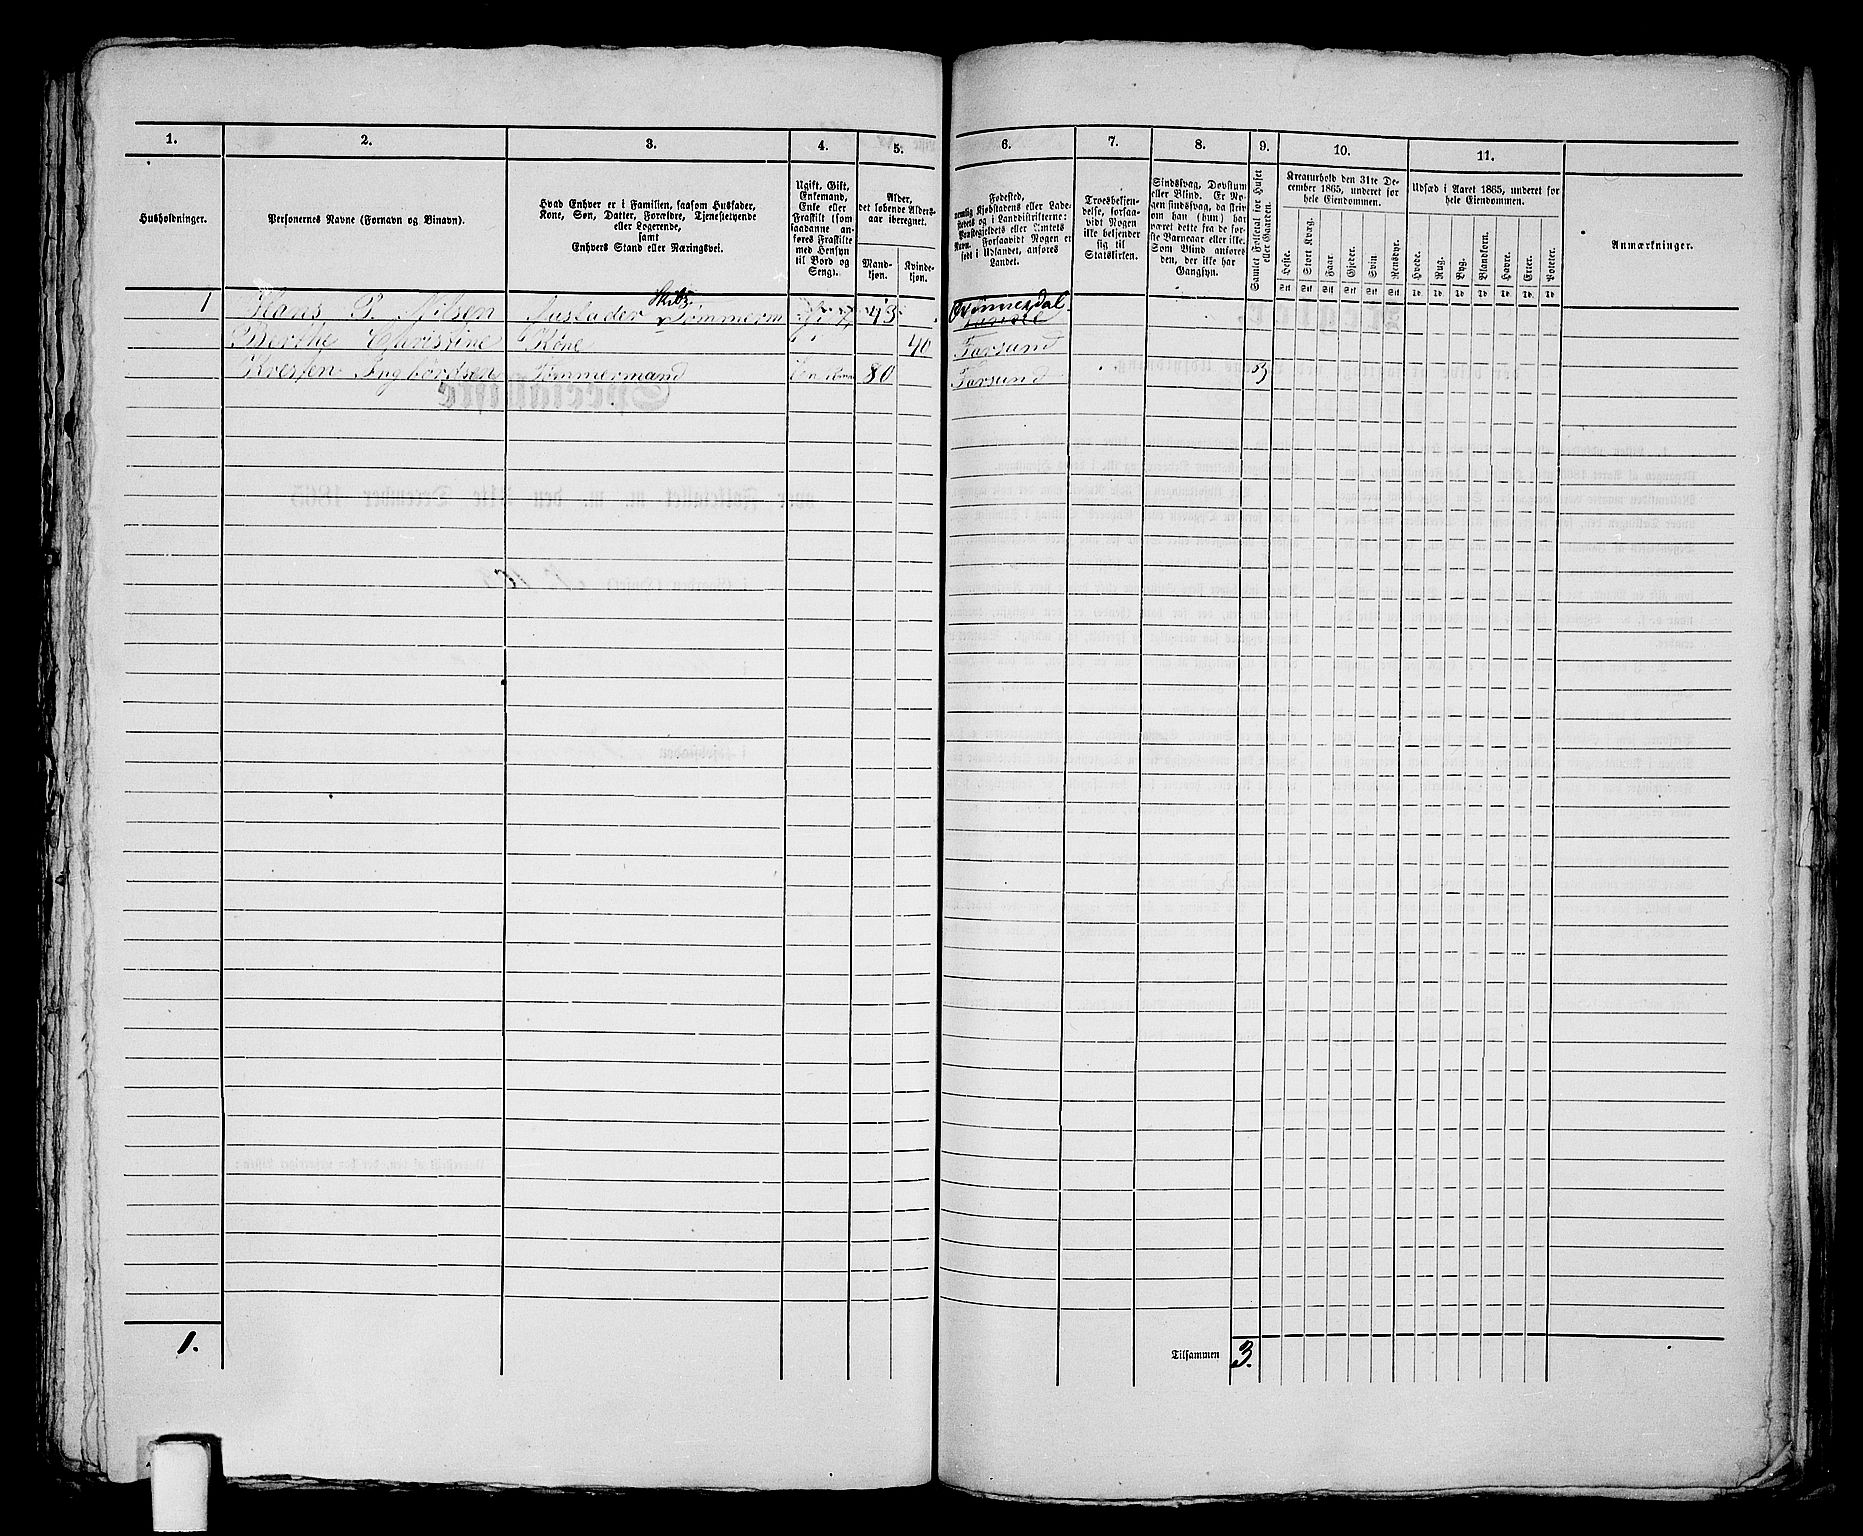 1. 2. 3. 4. 5. 6. 7. 8. 9. 10. 11.
Husholdninger.
Personernes Navne (Fornavn og Binavn).
Hvad Enhver er i Familien, saasom Husfader,
Kone, Søn, Datter, Forældre, Tjenestetyende
eller Logerende,
samt
Enhvers Stand eller Næringsvei.
Ugift, Gift,
Enkemand,
Enke eller
Fraskilt (som
saadanne an-
føres Fraskilte
med Hensyn
til Bord og
Seng).
Alder,
det løbende Alders-
aar iberegnet.
Mand-
kjøn.
Kvinde-
kjøn.
Fødested,
nemlig Kjøbstadens eller Lade-
stedets og i Landdistrikterne:
Præstegjeldets eller Amtets
Navn. Forsaavidt Nogen er
født i Udlandet, anføres
Landet.
Troesbekjen-
delse, forsaa-
vidt Nogen
ikke bekjender
sig til
Statskirken.
Sindssvag, Døvstum
eller Blind. Er No-
gen sindssvag, da skriv
om han (hun) har
været dette fra de før-
ste Barneaar eller ikke.
Som Blind anføres
den, der ikke har
Gangsyn.
Samlet Folketal for Huset
eller Gaarden.
Kreaturhold den 31te De-
cember 1865, underet for
hele Eiendommen.
Heste. Stort Kvæg. Faar. Gjeder. Svin. Rensdyr.
Stk Stk Stk Stk Stk Stk
Udsæd i Aaret 1865, underet for
hele Eiendommen.
Hvede. Rug. Byg. Blandkorn. Havre. Erter. Poteter.
Td. Td. Td. Td. Td. Td. Td.
Anmærkninger.
1 Hans P. Nilsen Husfader Skibs Tømmerm Gift 43 Qvinnesdal
Berthe Christine Kone " 40 Farsund
Kresten Ingbordsen Tømmermand 80 Farsund 3
1.
Tilsammen 3.